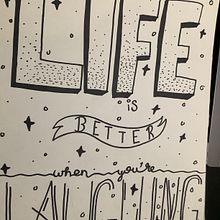 LIFE
is
BETTER
when you're
LAUGHING